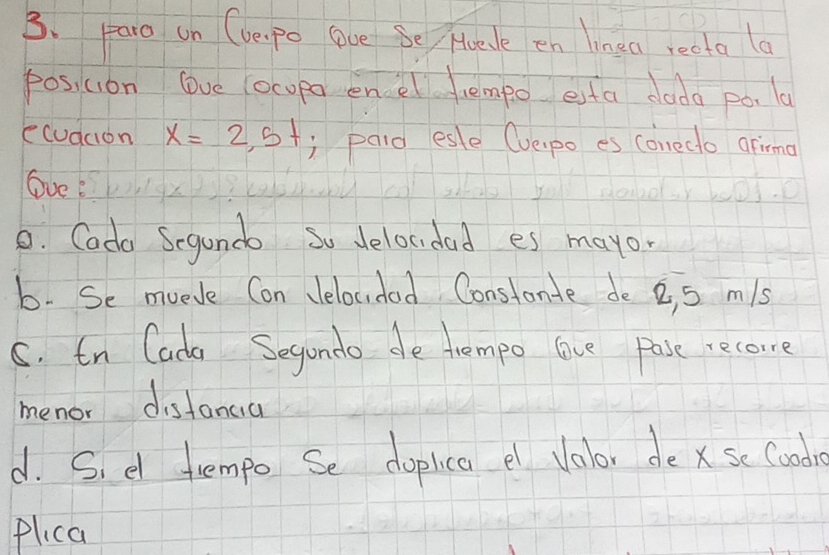 3. para un Cuerpo Que Se Mueve en linea recta la
posicion Que ocupa en el tiempo esta dada por la
ecuacion x = 2,5t; para este Cuerpo es correcto afirma
Que:
a. Cada Segundo Su Velocidad es mayor
b. Se mueve Con Velocidad Constante de 2,5 m/s
c. En Cada Segundo de tiempo Que Pase recorre
menor distancia
d. Si el tiempo Se duplica el Valor de x se Cuadru
plica